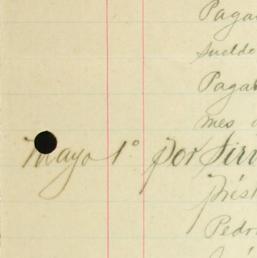 Paga
Sueldo
Paga
mes
Mayo 1° por Sir
prést
Pedr